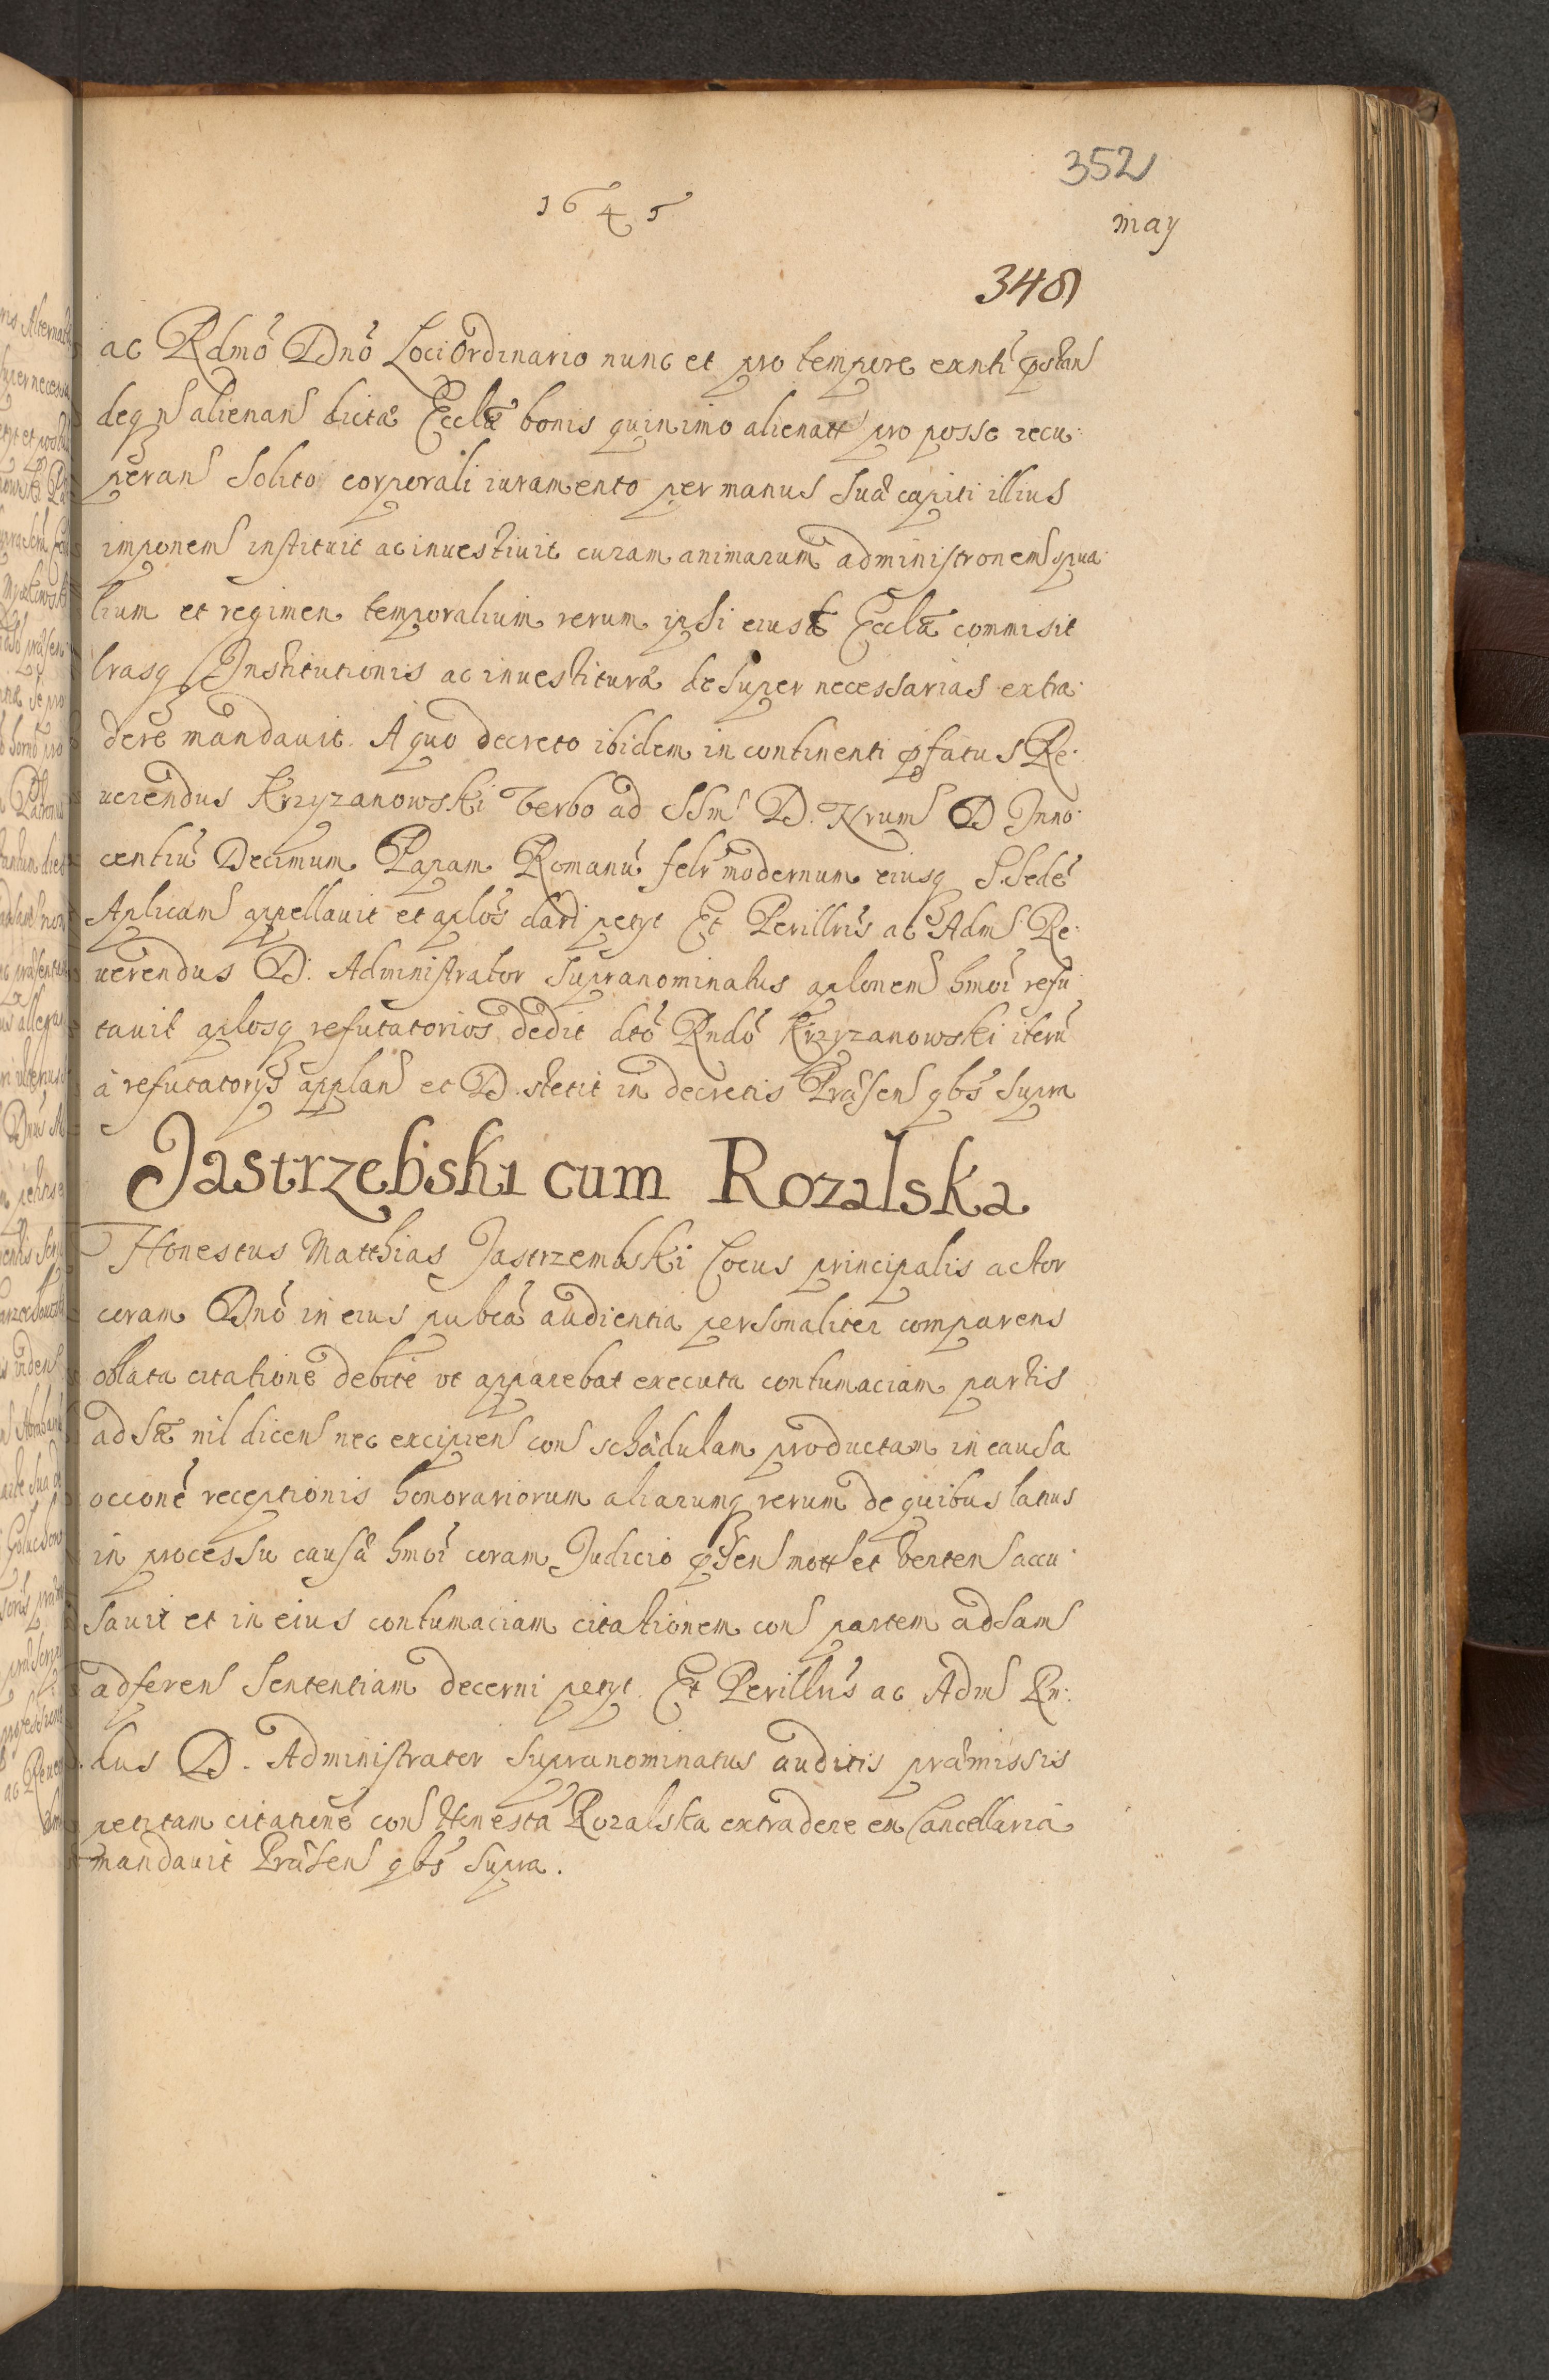 352
1645
may
348
ac Rdmo Dno Loci Ordinario nunc et pro tempore exnti pstan
deq n alienan dictæ Ecclæ bonis quinimo alienatt pro posse recu
peran solito corporali iuramento per manus suæ capiti illius
imponem instituit ac inuestiuit curam animarum administronem spua
lium et regimen temporalium rerum ipsi eiusd Ecclæ commisit
lrasq Institutionis ac inuestituræ desuper necessarias extra
dere mandauit. A quo decreto ibidem in continenti pfatus Re
uerendus Krzyzanowski verbo ad SSm D. Nrum D Inno
centiu Decimum Papam Romanu felr modernum eiusq S. Sede
Aplicam appellauit et aplos dari petyt Et Perillris ac Adm Re
uerendus D. Administrator supranominatus aplonem hmoi refu
tauit aplosq refutatorios dedit dto Rndo Krzyzanowski iteru
à refutatorys applan et D. stetit in decretis Præsen qbs supra
Jastrzebski cum Rozalska
Honestus Matthias Jastrzembski Cocus principalis actor
coram Dno in eius pubca audientia personaliter comparens
oblata citatione debite vt apparebat executa contumaciam partis
adsæ nil dicen nec excipien con schædulam productam in causa
occone receptionis honorariorum aliarumq rerum de quibus latius
in processu causæ hmoi coram Judicio psen mott et verten accu
sauit et in eius contumaciam citationem con partem adsam
ad feren sententiam decerni petyt. Et Perillris ac Adm Rn
dus D. Administrator supranominatus auditis præmissis
petitam citatione con Honesta Rozalska extradere ex Cancellaria
mandauit Præsen qbs supra.